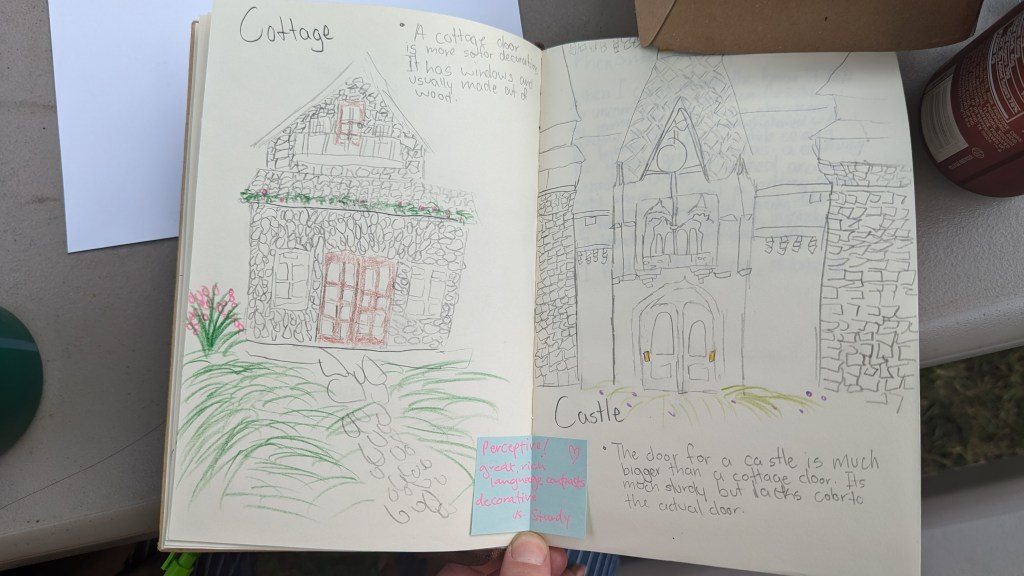 Cottage
• A cottage door
is more softor decorative
It has windows and
usually made out of
wood.
Castle
• The door for a castle is much
bigger than a cottage door. Its
much sturdy, but lacks color to
the actual door.
Perceptive!
great, rich
language
decorative
vs. Sturdy